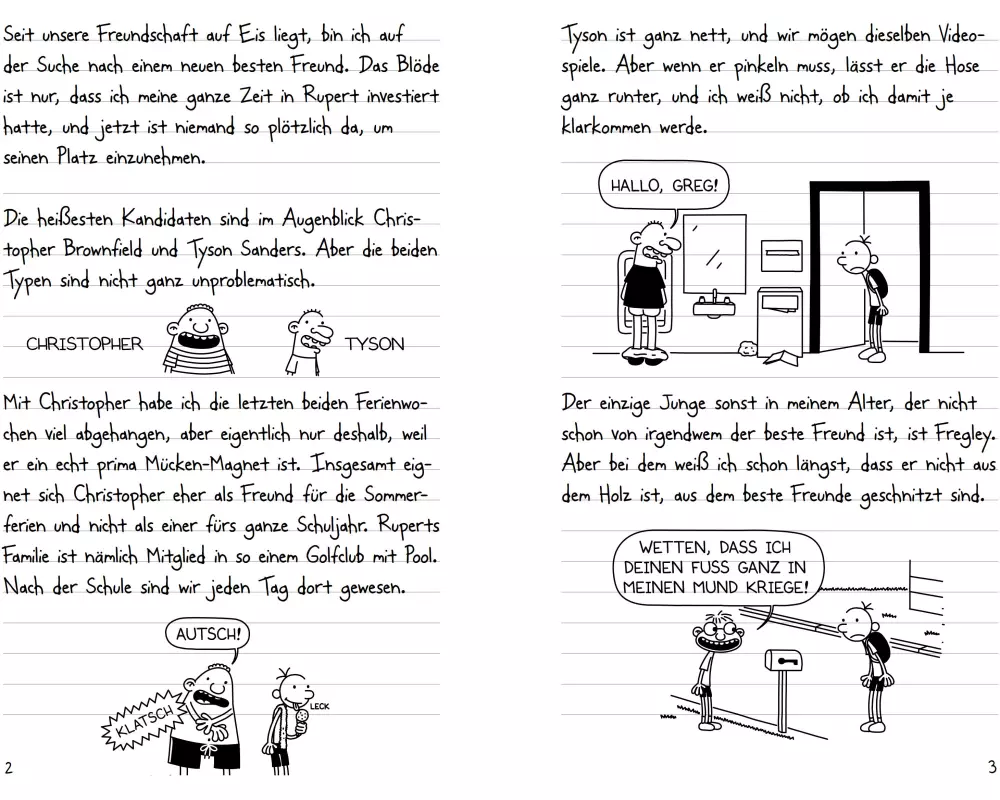 Seit unsere Freundschaft auf Eis liegt, bin ich auf
der Suche nach einem neuen besten Freund. Das Blöde
ist nur, dass ich meine ganze Zeit in Rupert investiert
hatte, und jetzt ist niemand so plötzlich da, um
seinen Platz einzunehmen.
Die heißesten Kandidaten sind im Augenblick Chris-
topher Brownfield und Tyson Sanders. Aber die beiden
Typen sind nicht ganz unproblematisch.
CHRISTOPHER TYSON
Mit Christopher habe ich die letzten beiden Ferienwo-
chen viel abgehangen, aber eigentlich nur deshalb, weil
er ein echt prima Mücken-Magnet ist. Insgesamt eig-
net sich Christopher eher als Freund für die Sommer-
ferien und nicht als einer fürs ganze Schuljahr. Ruperts
Familie ist nämlich Mitglied in so einem Golfclub mit Pool.
Nach der Schule sind wir jeden Tag dort gewesen.
AUTSCH!
KLATSCH
LECK
2
Tyson ist ganz nett, und wir mögen dieselben Video-
spiele. Aber wenn er pinkeln muss, lässt er die Hose
ganz runter, und ich weiß nicht, ob ich damit je
klarkommen werde.
HALLO, GREG!
Der einzige Junge sonst in meinem Alter, der nicht
schon von irgendwem der beste Freund ist, ist Fregley.
Aber bei dem weiß ich schon längst, dass er nicht aus
dem Holz ist, aus dem beste Freunde geschnitzt sind.
WETTEN, DASS ICH
DEINEN FUSS GANZ IN
MEINEN MUND KRIEGE!
3